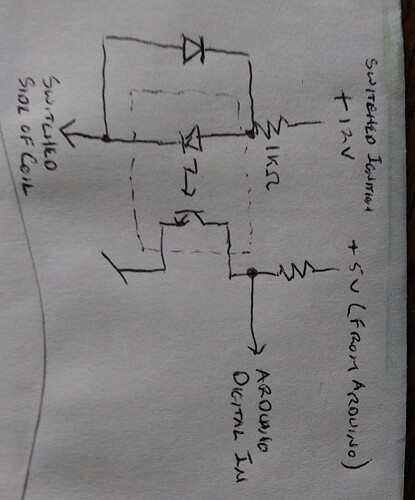 SWITCHED IGNITION
+12V
+5V (FROM ARDUINO)
1KΩ
ARDUINO
DIGITAL IN
SWITCHED
SIDE OF COIL